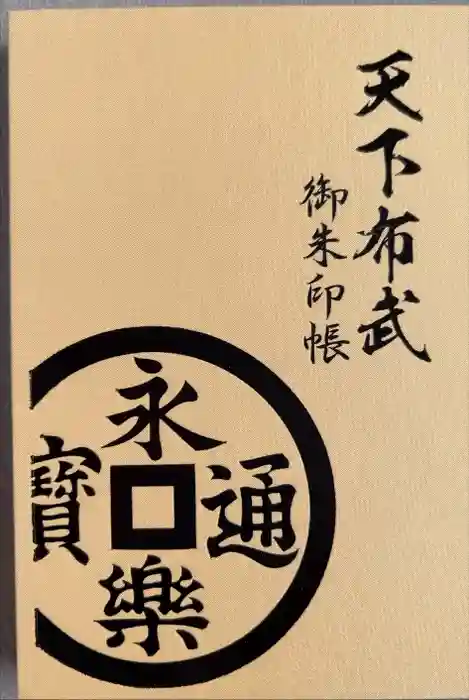 天下布武
御朱印帳
永樂通寶